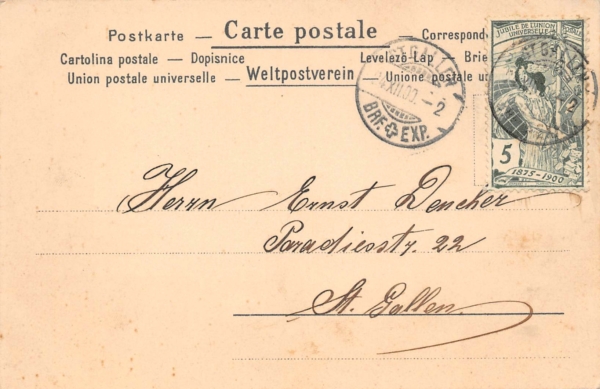 Postkarte — Carte postale — Correspond
Cartolina postale — Dopisnice Levelező-Lap — Brie
Union postale universelle — Weltpostverein — Unione postale u
JUBILÉ DE L'UNION
UNIVERSELLE POSTALE
5
1875-1900
ST. GALLEN
XII.00. — 2
BRF. EXP.
ST. GALLEN
2
Herrn Ernst Dencher
Paradiesstr. 22
St. Gallen.